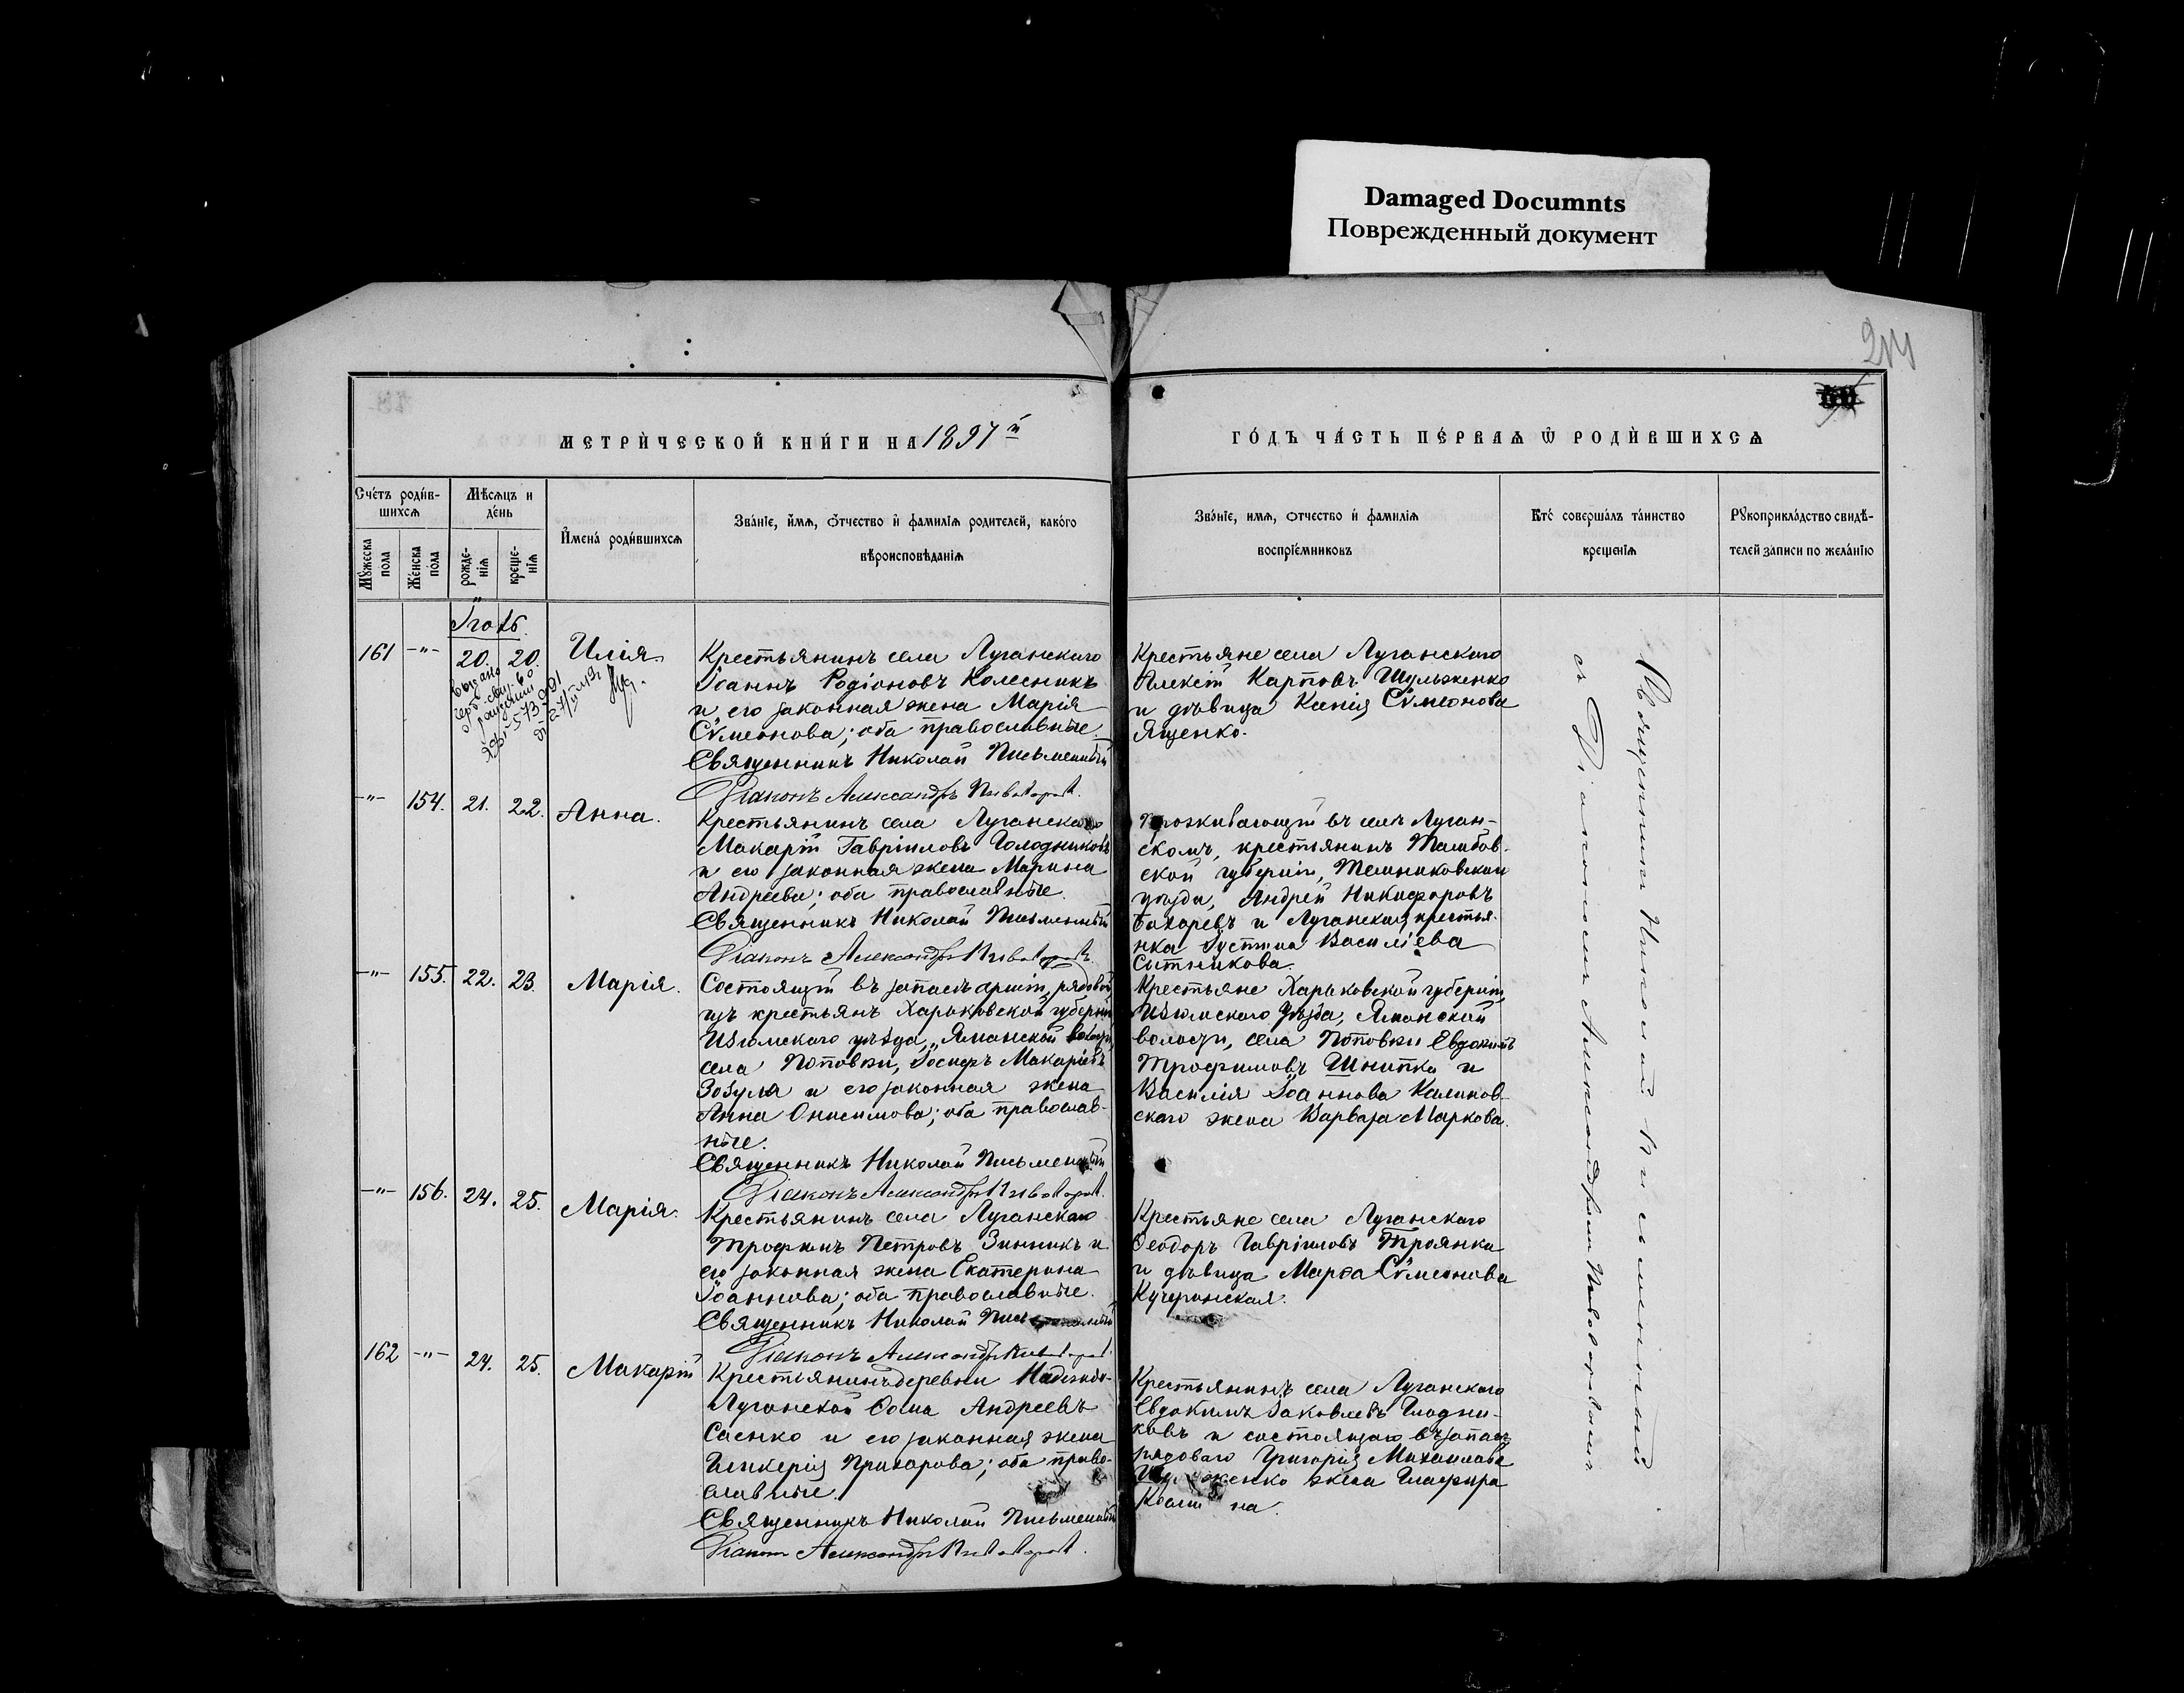 Damaged Documnts
Поврежденный документ
МЕТРИ́ЧЕСКОЙ КНИ́ГИ НА 1897 й
ГО́ДЪ ЧА́СТЬ ПЕ́РВАѦ Ѿ РОДИ́ВШИХСѦ
Сче́тъ роди́в-
шихсѧ
Мꙋжеска пола
Же́нска пола
Мѣсѧцъ и
де́нь
рожде-
нїѧ
креще-
нїѧ
И҆мена̀ роди́вшихсѧ
Зва́нїе, и҆́мѧ, ѻ҆́тчество и҆ фамилїѧ родителей, како́го
вѣроисповѣданїѧ
Зва́нїе, имѧ, ѻтчество и҆ фамилїѧ
воспрїе́мниковъ
Кто̀ соверша́лъ та́инство
крещенїѧ
Рꙋкоприкла́дство свидѣ-
телей за́писи по жела́нїю
161 -"- 20. 20. Илія.
Крестьянинъ села Луганскаго
Іоаннъ Родіоновъ Колесникъ
и его законная жена Марія
Сѵмеонова; оба православные.
Священникъ Николай Письменный
Діаконъ Александръ
Крестьяне села Луганскаго
Алексій Карповъ Шульженко
и дѣвица Ксенія Сѵмеонова
Ященко.
-"- 154. 21. 22. Анна.
Крестьянинъ села Луганскаго
Макарій Гавріиловъ Голодниковъ
и его законная жена Марина
Андреева; оба православные.
Священникъ Николай Письменный
Діаконъ Александръ
Проживающій въ селѣ Луган-
скомъ, крестьянинъ Тамбов-
ской губерніи, Темниковскаго
уѣзда, Андрей Никифоровъ
и Луганская крестья-
нка Іустина Василіева
Сытникова.
-"- 155. 22. 23. Марія.
Состоящій въ запасѣ арміи, рядовой
изъ крестьянъ Харьковской губерніи
Изюмскаго уѣзда, Ямпской волости,
села Поповки, Іосифъ Макаріевъ
Зозуля и его законная жена
Анна Онисимова; оба православ-
ные.
Священникъ Николай Письменный
Діаконъ Александръ
Крестьяне Харьковской губерніи,
Изюмскаго уѣзда,
волости, села Поповки Евдокимъ
Трофимовъ Шнипко и
Василія Іоаннова Калинов-
скаго жена Варвара Маркова.
-"- 156. 24. 25. Марія.
Крестьянинъ села Луганскаго
Трофимъ Петровъ Зинникъ и
его законная жена Екатерина
Іоаннова; оба православные.
Священникъ Николай
Діаконъ Александръ
Крестьяне села Луганскаго
Ѳеодоръ Гавріиловъ Троянка
и дѣвица Марѳа Сѵмеонова
Кучеринская.
162 -"- 24. 25. Макарій
Крестьянинъ деревни
Луганской Ѳома Андреевъ
Саенко и его законная жена
Гликерія Прихорова; оба право-
славные.
Священникъ Николай Письменный
Діаконъ Александръ
Крестьянинъ села Луганскаго
Евдокимъ Іаковлевъ
и состоящаго въ запасѣ
рядоваго Григорія Михаилова
жена Глафира
Священникъ Николай Письменный
съ Діакономъ Александромъ